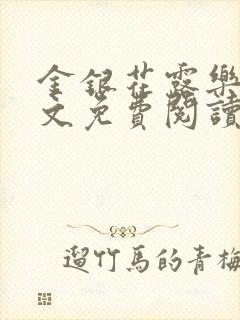 金銀花露樂
文免費閱讀
遛竹馬的青梅